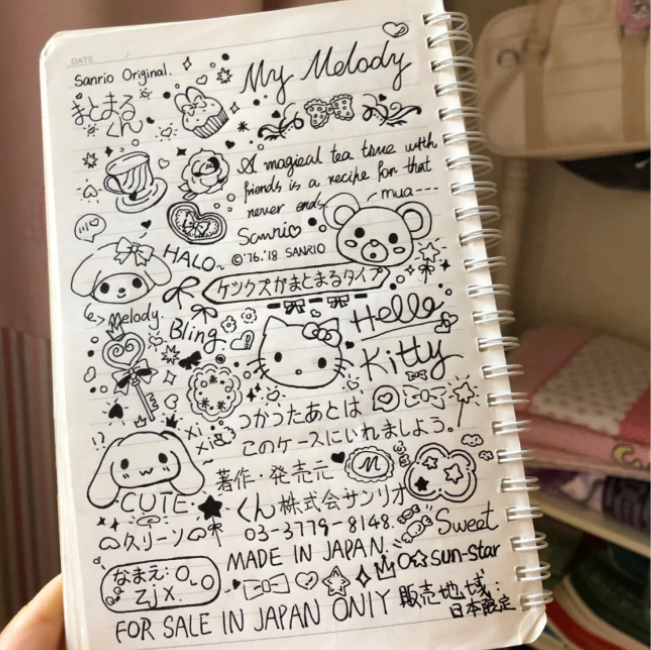 DATE
Sanrio Original.
My Melody
まとまる
くん
A magical tea time with
friends is a recipe for that
never ends
mua---
Sanrio
©'76.'18 SANRIO
HALO~
ケシクズがまとまるタイプ
Melody.
Bling
Hello
Kitty
!?
xixi
つかったあとは
このケースにいれましょう。
CUTE
著作・発売元
M
くん株式会サンリオ
クリーン
03-3779-8148.
Sweet
MADE IN JAPAN.
sun-star
なまえ:
ZJX.
FOR SALE IN JAPAN ONlY
販売地域:
日本限定